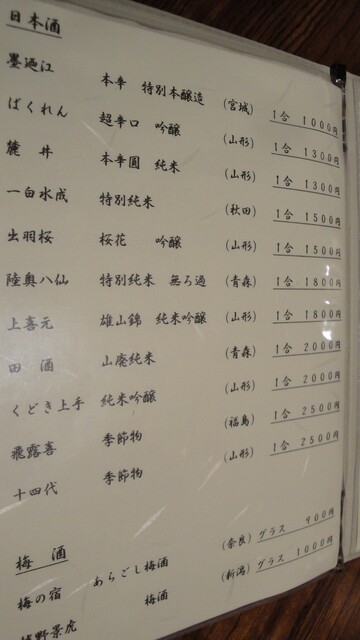 日本酒
墨廼江 本辛 特別本醸造 (宮城) 1合 1000円
ばくれん 超辛口 吟醸 (山形) 1合 1300円
麓井 本辛圓 純米 (山形) 1合 1300円
一白水成 特別純米 (秋田) 1合 1500円
出羽桜 桜花 吟醸 (山形) 1合 1500円
陸奥八仙 特別純米 無ろ過 (青森) 1合 1800円
上喜元 雄山錦 純米吟醸 (山形) 1合 1800円
田酒 山廃純米 (青森) 1合 2000円
くどき上手 純米吟醸 (山形) 1合 2000円
飛露喜 季節物 (福島) 1合 2500円
十四代 季節物 (山形) 1合 2500円
梅酒
梅の宿 あらごし梅酒 (奈良) グラス 900円
野景虎 梅酒 (新潟) グラス 1000円